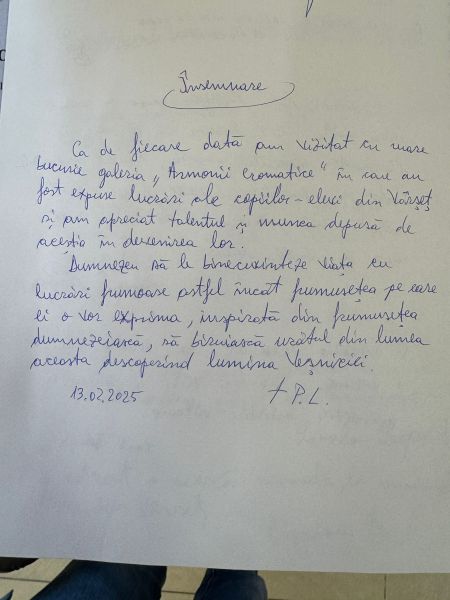 Însemnare
Ca de fiecare dată am vizitat cu mare
bucurie galeria „Armonii cromatice" în care au
fost expuse lucrări ale copiilor-elevi din Vârșeț
și am apreciat talentul și munca depusă de
aceștia în devenirea lor.
Dumnezeu să le binecuvinteze viața cu
lucrări frumoase astfel încât frumusețea pe care
ei o vor exprima, inspirată din frumusețea
dumnezeiască, să biruiască urâtul din lumea
aceasta descoperind lumina Veșniciei.
13.02.2025 + P.L.